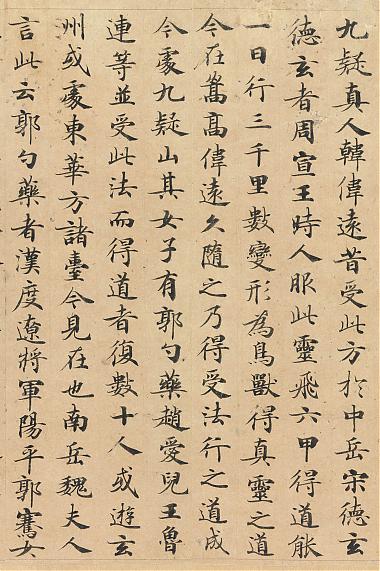 九疑真人韓偉遠昔受此方於中岳宋德玄
德玄者周宣王時人服此靈飛六甲得道能
一日行三千里數變形為鳥獸得真靈之道
今在嵩高偉遠久隨之乃得受法行之道成
今處九疑山其女子有郭勺藥趙愛兒王魯
連等並受此法而得道者復數十人或遊玄
州或處東華方諸臺今見在也南岳魏夫人
言此云郭勺藥者漢度遼將軍陽平郭騫女